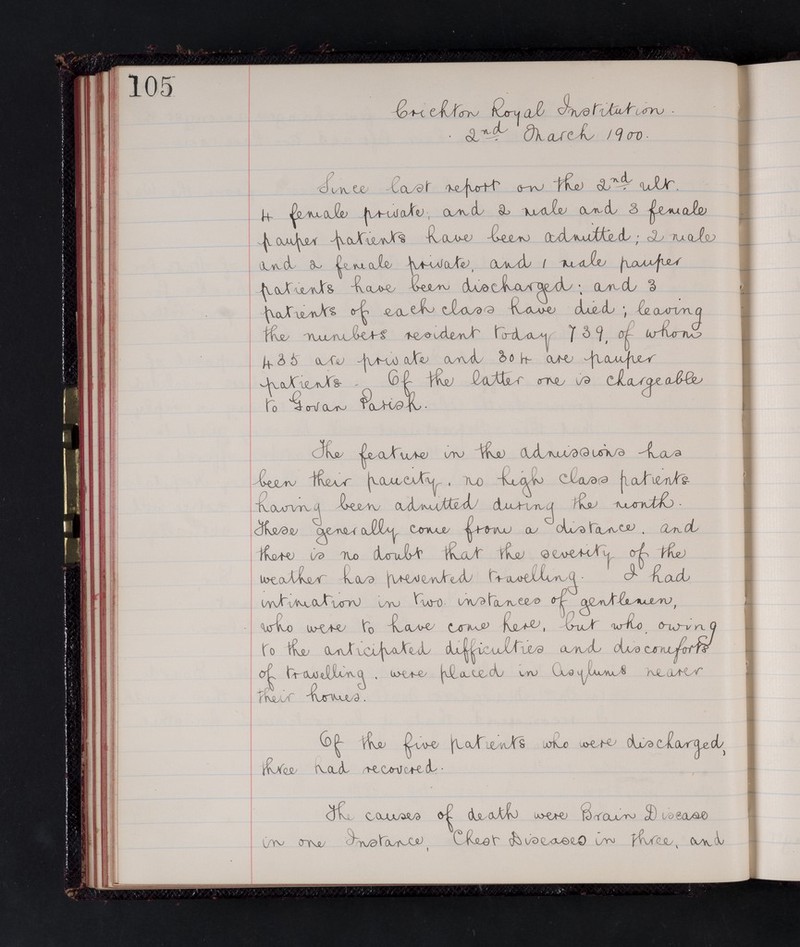 105
Crichton Royal Institution.
2nd March 1900.
Since last report on the 2nd ult.
4 female private, and 2 male and 3 female
pauper patients have been admitted; 2 male
and 2 female private, and 1 male pauper
patients have been discharged; and 3
patients of each class have died; leaving
the numbers resident today 739, of whom
435 are private and 304 are pauper
patients. Of the latter one is chargeable
to Govan Parish.
The feature in the admissions has
been their paucity, no high class patients
having been admitted during the month.
These generally come from a distance, and
there is no doubt that the severity of the
weather has prevented travelling. I had
intimation in two instances of gentlemen,
who were to have come here, but who, owing
to the anticipated difficulties and discomforts
of travelling, were placed in Asylums nearer
their homes.
Of the five patients who were discharged,
three had recovered.
The causes of death were Brain Disease
in one Instance, Chest Diseases in three, and